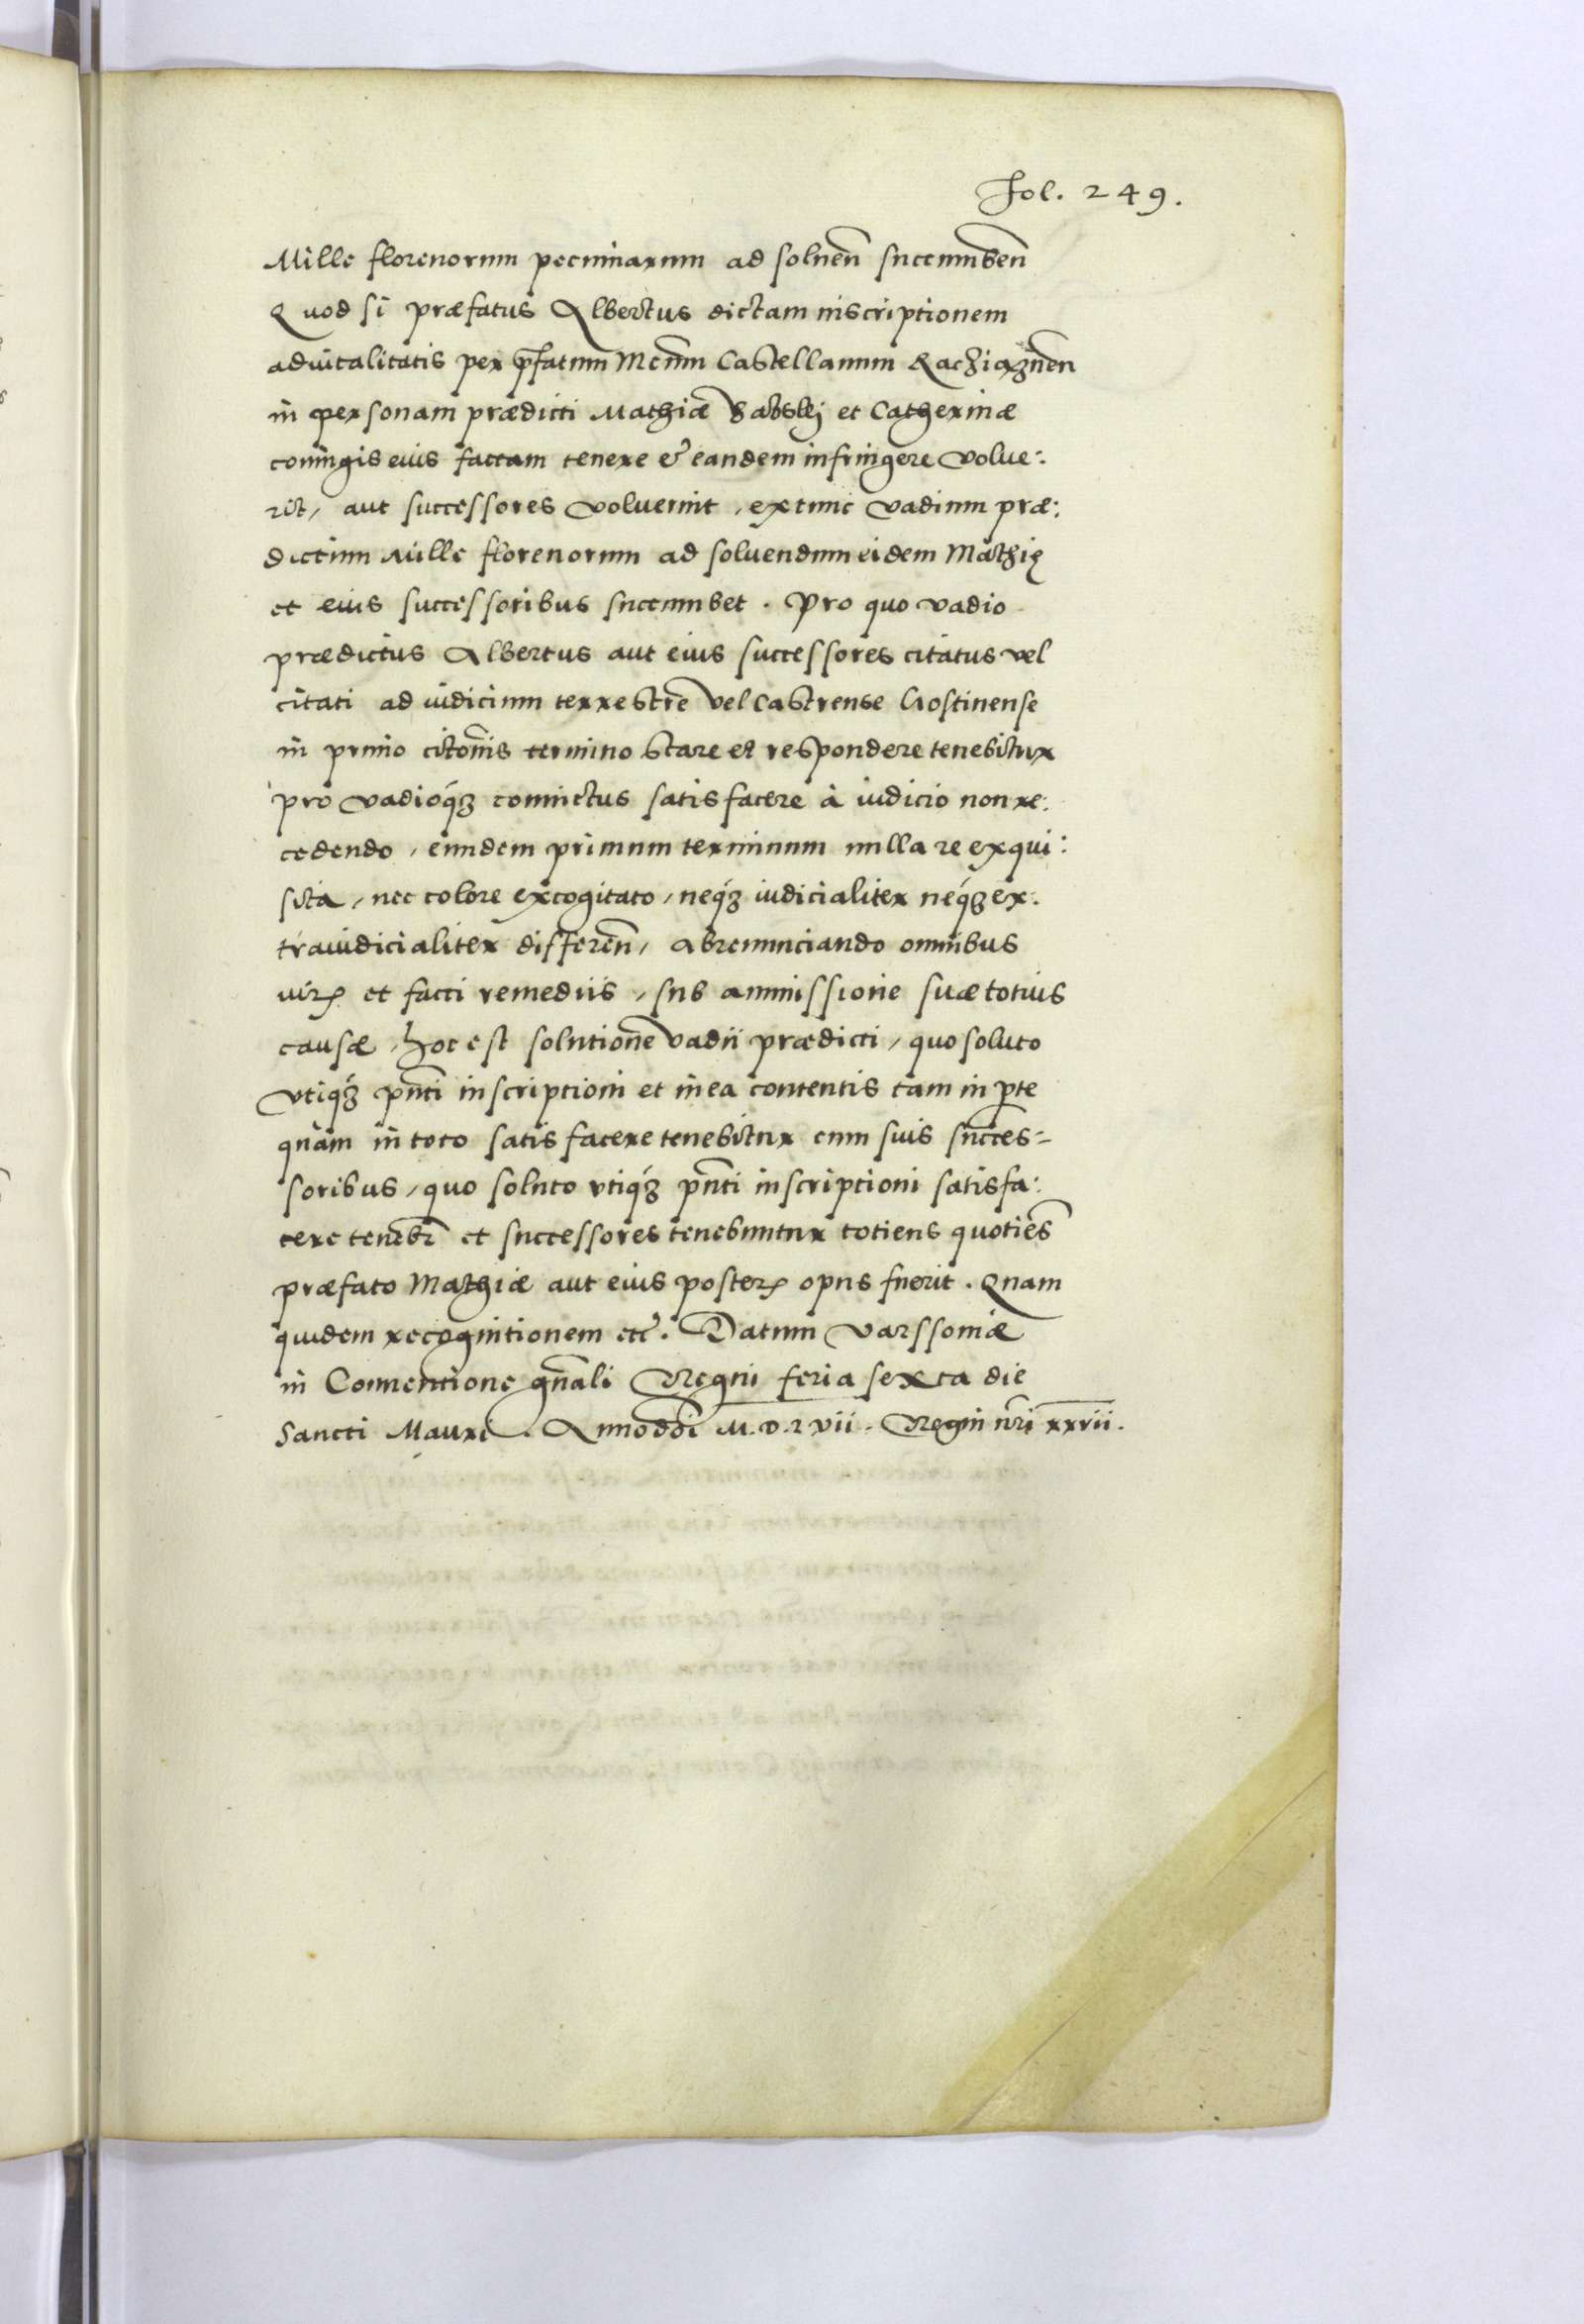 Fol. 249.
Mille florenorum pecuniarum ad soluen̄ succumben̄
Quod si præfatus Albertus dictam inscriptionem
aduitalitatis per p̄fatum Mcūm Castellanum Racziąznēn
in personam prædicti Mathiæ et Catherinæ
coniugis eius factam tenere & eandem infringere volue:
rit, aut successores voluerint, extunc vadium præ:
dictum Mille florenorum ad soluendum eidem Mathię
et eius successoribus succumbet. Pro quo vadio
prædictus Albertus aut eius successores citatus vel
citati ad iudicium terrestre vel Castrense Gostinense
in primo citōnis termino stare et respondere tenebitur
pro vadioq́ꝫ conuictus satisfacere à iudicio non re:
cedendo, eundem primum terminum nulla re exqui:
sita, nec colore excogitato, neq́ꝫ iudicialiter neq́ꝫ ex:
traiudicialiter differēn, abrenunciando omnibus
iurꝝ et facti remediis, sub ammissione suæ totius
causæ, hoc est solutione vadii prædicti, quo soluto
vtiq́ꝫ pn̄ti inscriptioni et in ea contentis tam in p̄te
quàm in toto satisfacere tenebitur cum suis succes-
soribus, quo soluto vtiq́ꝫ pn̄ti inscriptioni satisfa:
cere tenēbr̄ et successores tenebuntur totiens quotiēs
præfato Mathiæ aut eius posterꝝ opus fuerit. Quam
quidem recognitionem etc̄. Datum Varssouiæ
in Conuentione gn̄ali Regni feria sexta die
Sancti Mauri. Anno dn̄i M.D.Lvii. Regni nr̄i xxvii.